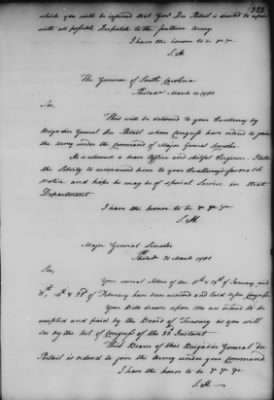 333
which you will be informed that Genl Du Portail is directed to repair
with all possible Dispatch to the southern Army
I have the honor to be &c &c
S.H.
The Governor of South Carolina
Philada March 31 1780
Sir,
This will be delivered to your Excellency by
Brigadier General Du Portail whom Congress have ordered to join
the Army under the Command of Major General Lincoln
As a brave Officer and skilful Engineer I take
the liberty to recommend him to your Excellency's favorable
notice and hope he may be of special Service in that
Department
I have the honor to be &c &c &c
S.H.
Major General Lincoln
Philada 31 March 1780
Sir,
Your several Letters of the and of January, and
of February have been received and laid before Congress
Your Bills drawn upon are to be
accepted and paid by the Board of Treasury as you will
see by the Act of Congress of the Instant
The Bearer of this Brigadier General Du
Portail is ordered to join the Army under your Command
I have the honor to be &c &c &c
S.H.